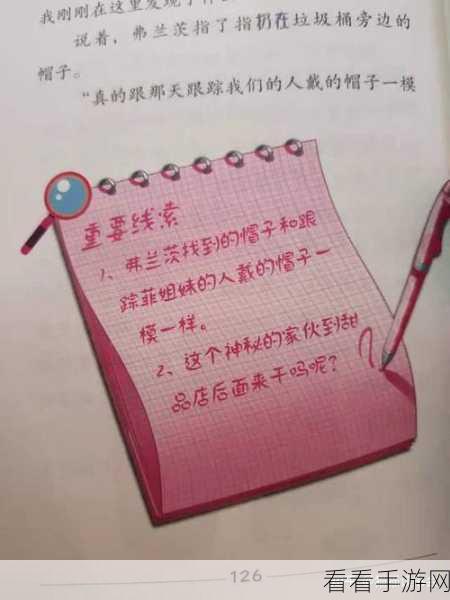 我刚刚在这里发现了
说着，弗兰茨指了指扔在垃圾桶旁边的
帽子。
“真的跟那天跟踪我们的人戴的帽子一模
重要线索
1、弗兰茨找到的帽子和跟
踪菲姐妹的人戴的帽子一
模一样。
2、这个神秘的家伙到甜
品店后面来干吗呢？
126
看看手游网